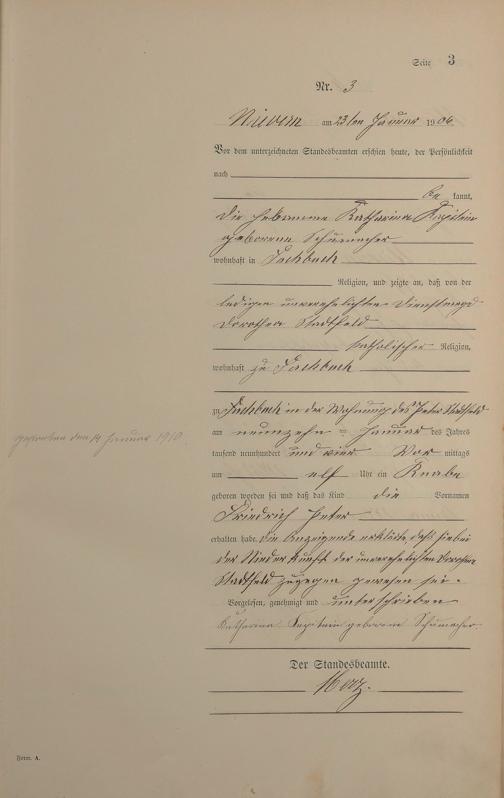 Seite 3
Nr. 3
Nievern am 23ten Januar 1904
Vor dem unterzeichneten Standesbeamten erschien heute, der Persönlichkeit
nach
be kannt,
die Hebamme Katharina Kapitain
geborene Schumacher
wohnhaft in Fachbach
Religion, und zeigte an, daß von der
ledigen unverehelichten Dienstmagd
Dorothea Stadtfeld
katholischer Religion,
wohnhaft zu Fachbach
zu Fachbach in der Wohnung des Peter Stadtfeld
am neunzehn = Januar des Jahres
tausend neunhundert und vier Vor mittags
um elf Uhr ein Knabe
geboren worden sei und daß das Kind die Vornamen
Friedrich Peter
erhalten habe. Die Anzeigende erklärte daß sie bei
der Niederkunft der unverehelichten Dorothea
Stadtfeld zugegen gewesen sei.
Vorgelesen, genehmigt und unterschrieben
Katharina Kapitain geborene Schumacher
Der Standesbeamte.
den 14 Januar 1910
Form. A.